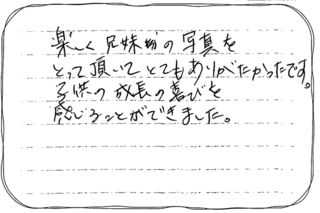 楽しく兄妹の写真を
とって頂いてとてもありがたかったです。
子供の成長の喜びを
感じることができました。